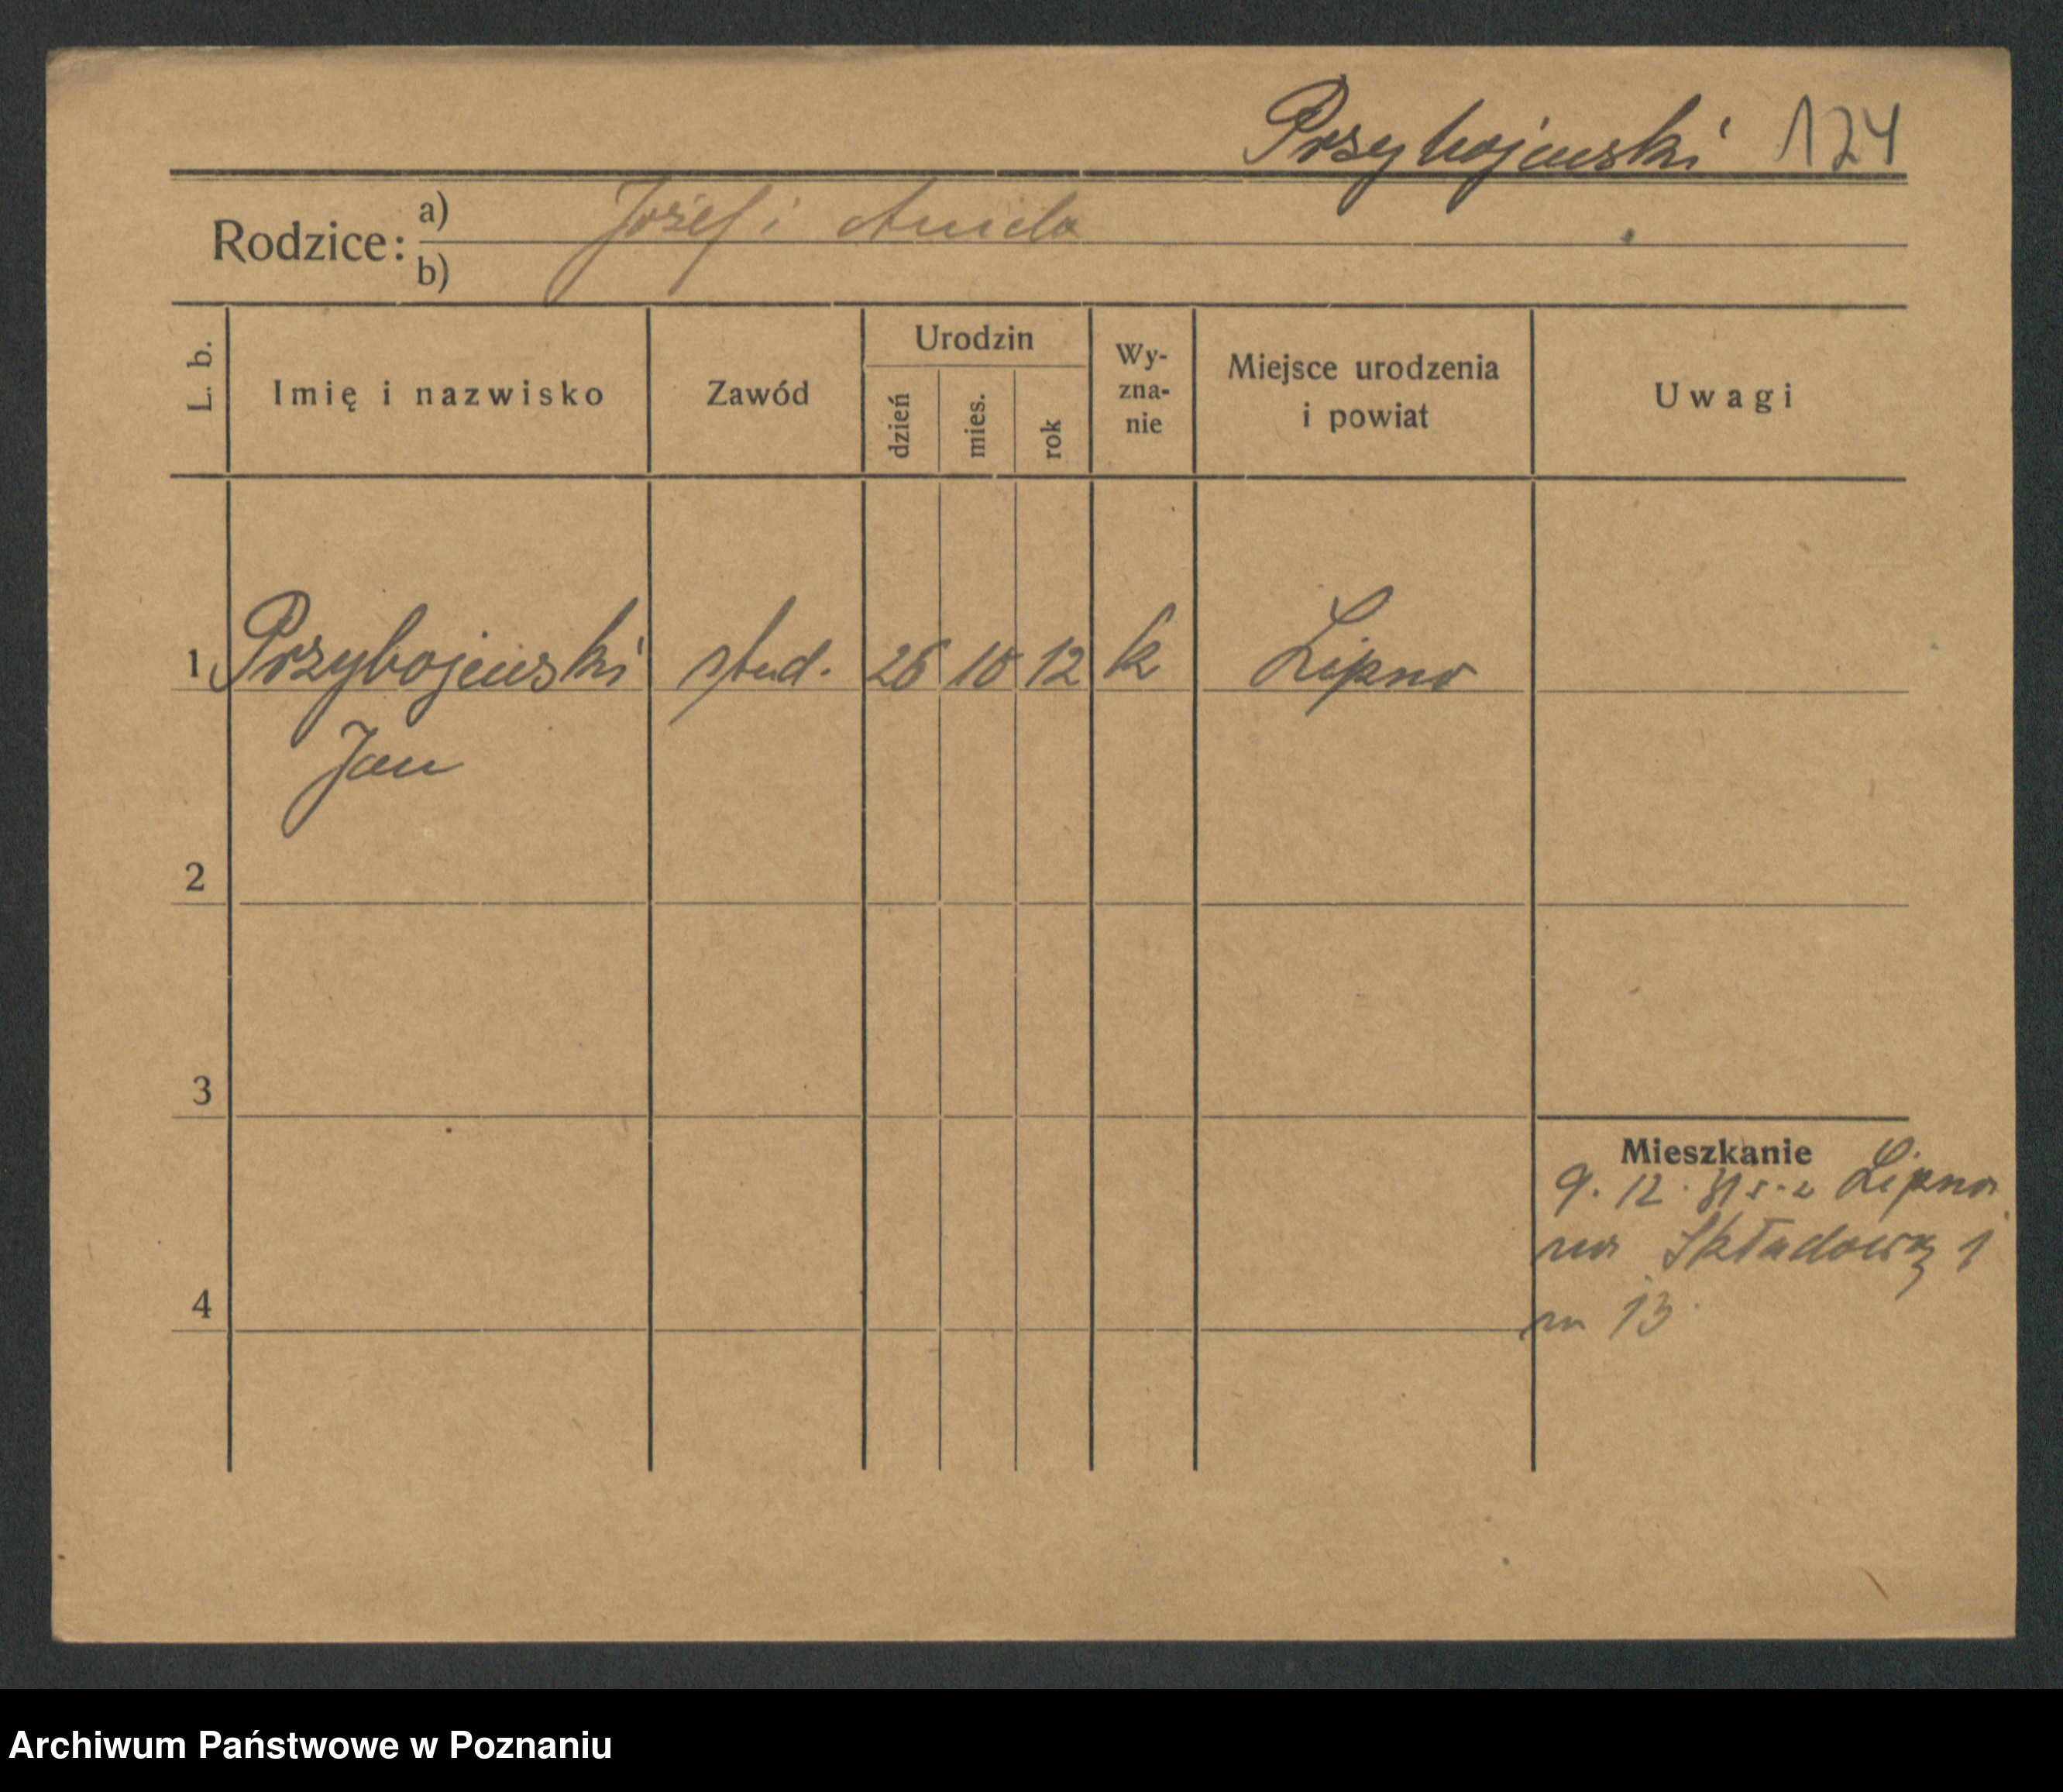 Przybojewski 124
Rodzice: a) Józef i Aniela
b)
L. b. Imię i nazwisko Zawód Urodzin dzień mies. rok Wy-zna-nie Miejsce urodzenia i powiat Uwagi
1 Przybojewski stud. 26 10 12 k Lipno
Jan
2
3
Mieszkanie
9. 12. 31 Lipno
na Składową
4
m 13
Archiwum Państwowe w Poznaniu